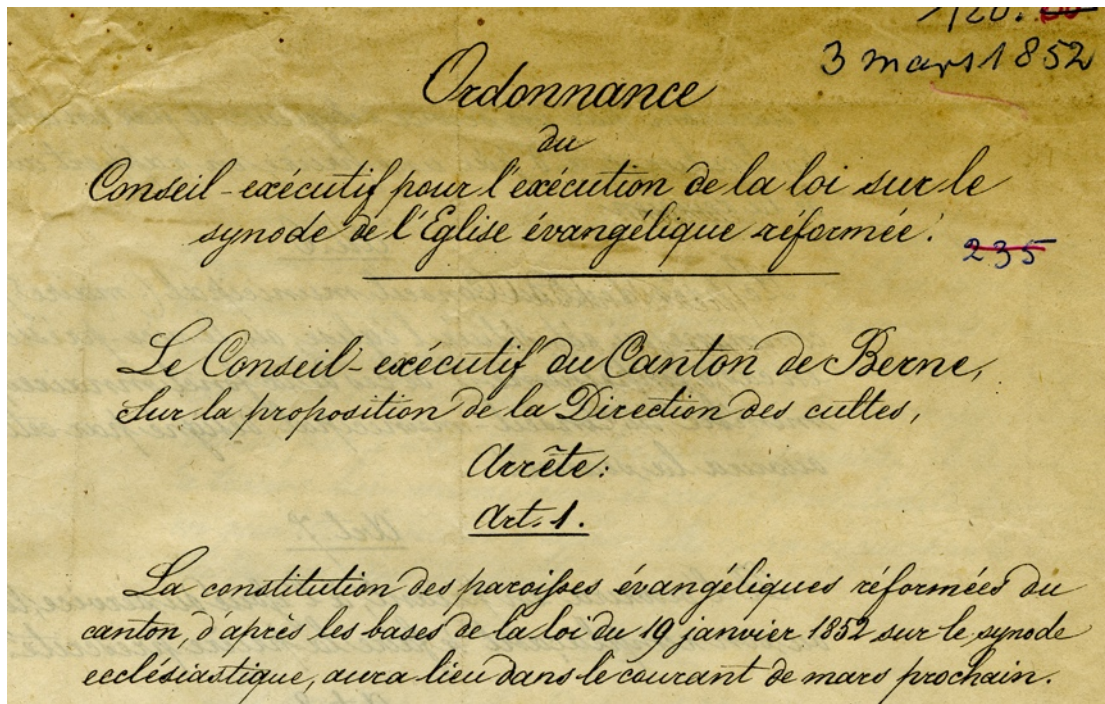 3 mars 1852
Ordonnance
du
Conseil-exécutif pour l'exécution de la loi sur le
synode de l'Eglise évangélique réformée.
235
Le Conseil-exécutif du Canton de Berne,
Sur la proposition de la Direction des cultes,
Arrête:
Art. 1.
La constitution des paroisses évangéliques réformées du
canton, d'après les bases de la loi du 19 janvier 1852 sur le synode
ecclésiastique, aura lieu dans le courant de mars prochain.